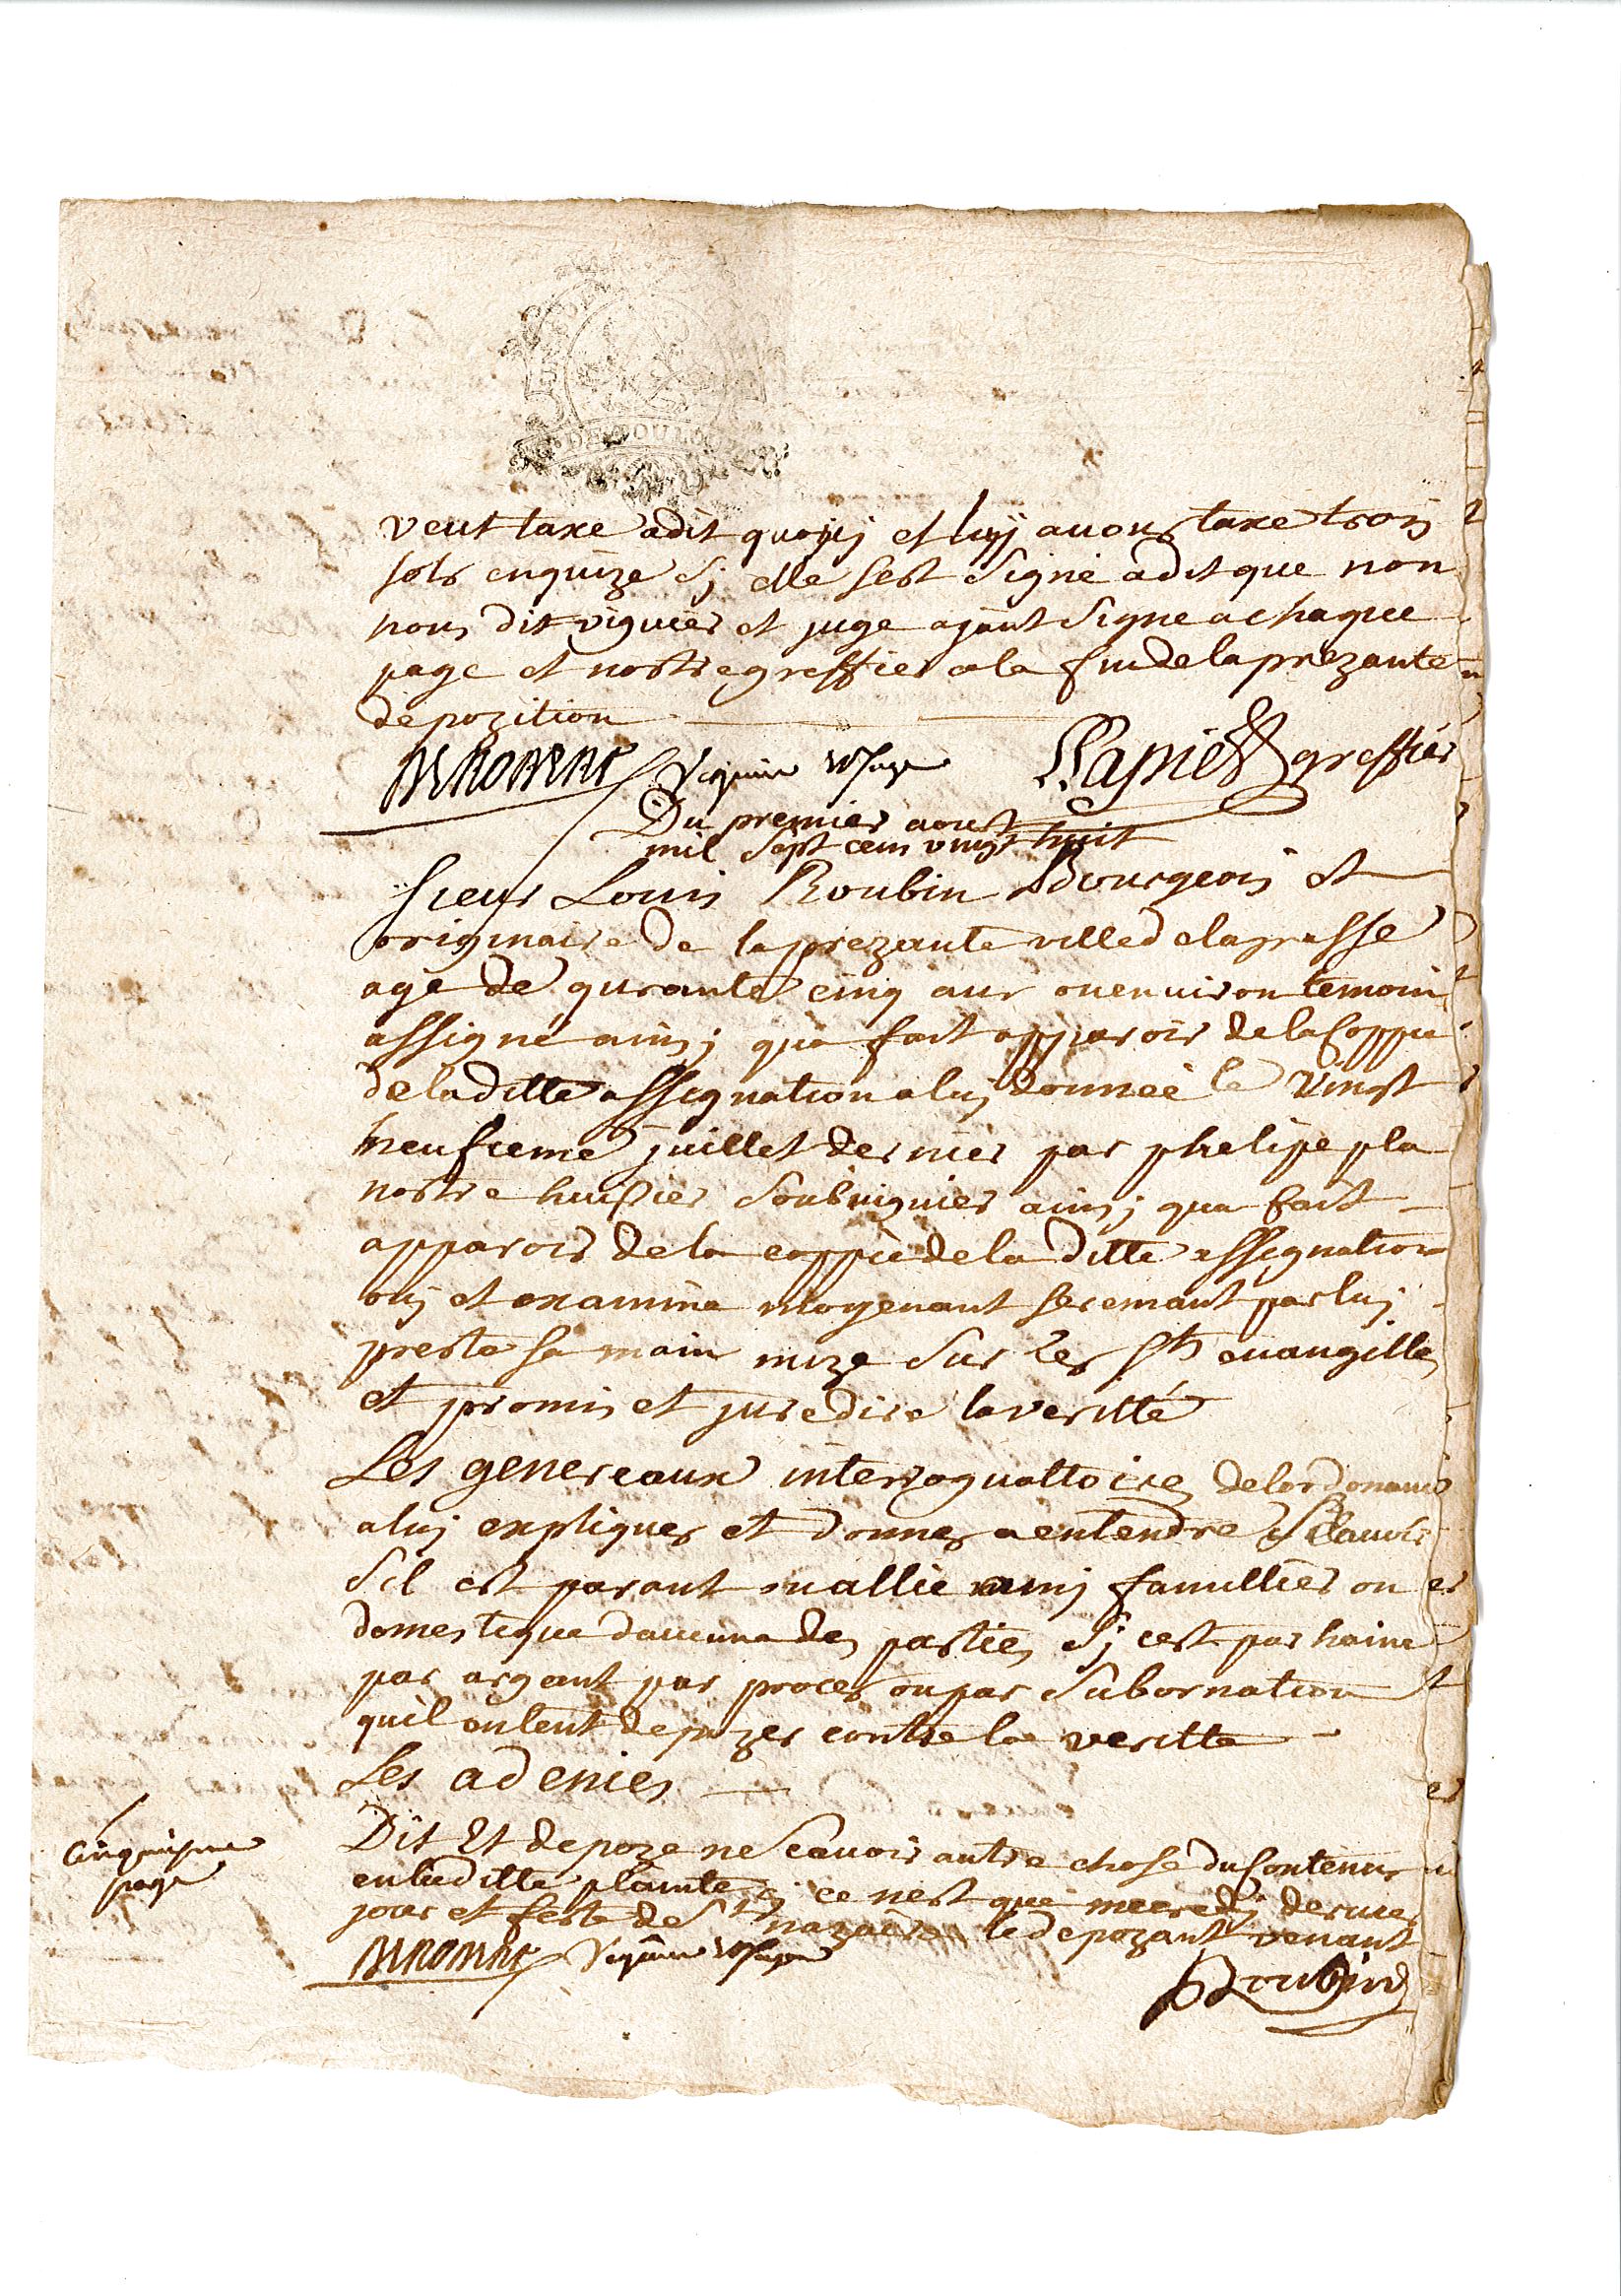 DE TOULOUSE
veut taxe a dit quoyi et luy avons taxé trois
sols enquize sy elle sest signé a dit que non
nous dit viguier et juge ayant signe a chaque
page et nostre greffier a la fin de la prezante
depozition
Viguier et Juge greffier
Du premier aoust
mil sept cens vingt huit
Sieur Louis Roubin Bourgeois et
originaire de la prezante ville de lagrasse
agé de quranté cinq ans ou enuiron temoin
assigné ainsy qua fait apparoir de la Coppie
de la ditte assignation a luy donneé le vingt
neufieme juillet dernier par phelipe pla
nostre huissier soubuiguier ainsy qua fait
apparoir de la coppie de la ditte assignation
ouy et examiné moyenant seremant par luy
presté sa main mize sur les Sts euangilles
et promis et juré dire la veritté
Les genereaux interroguattoires de lordonance
a luy expliques et donnes a entendre
Sil est parant ou allié amy famillier ou
domestique daucune des parties sy cest par haine
par argant par proces ou par subornation
quil ent depozer contre la veritte
Les a denies
Dit Et depoze ne scauoir autre chose du Contenu
en la ditte plainte sy ce nest que mecredy dernier
jour et feste de St nazaire le depozant venant
Cinquiesme
page
Viguier et Juge
Roubin